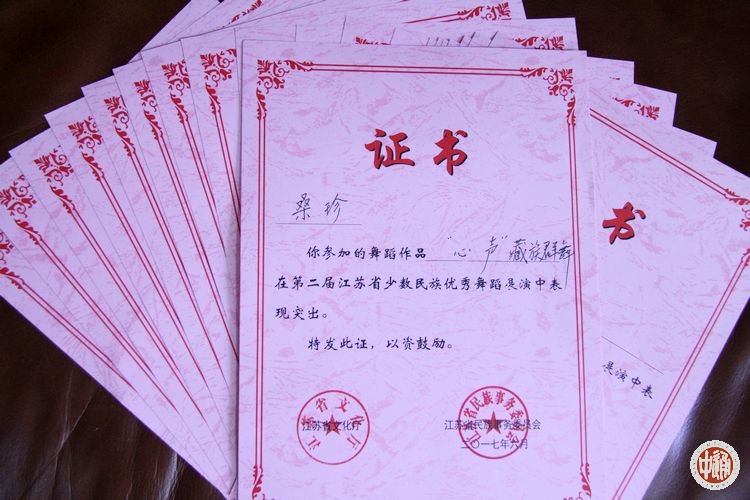 证书
桑珍
你参加的舞蹈作品 "心声"藏族群舞
在第二届江苏省少数民族优秀舞蹈展演中表
现突出。
特发此证,以资鼓励。
江苏省文化厅
江苏省文化厅
江苏省民族事务委员会
二〇一七年六月
书
展演中表